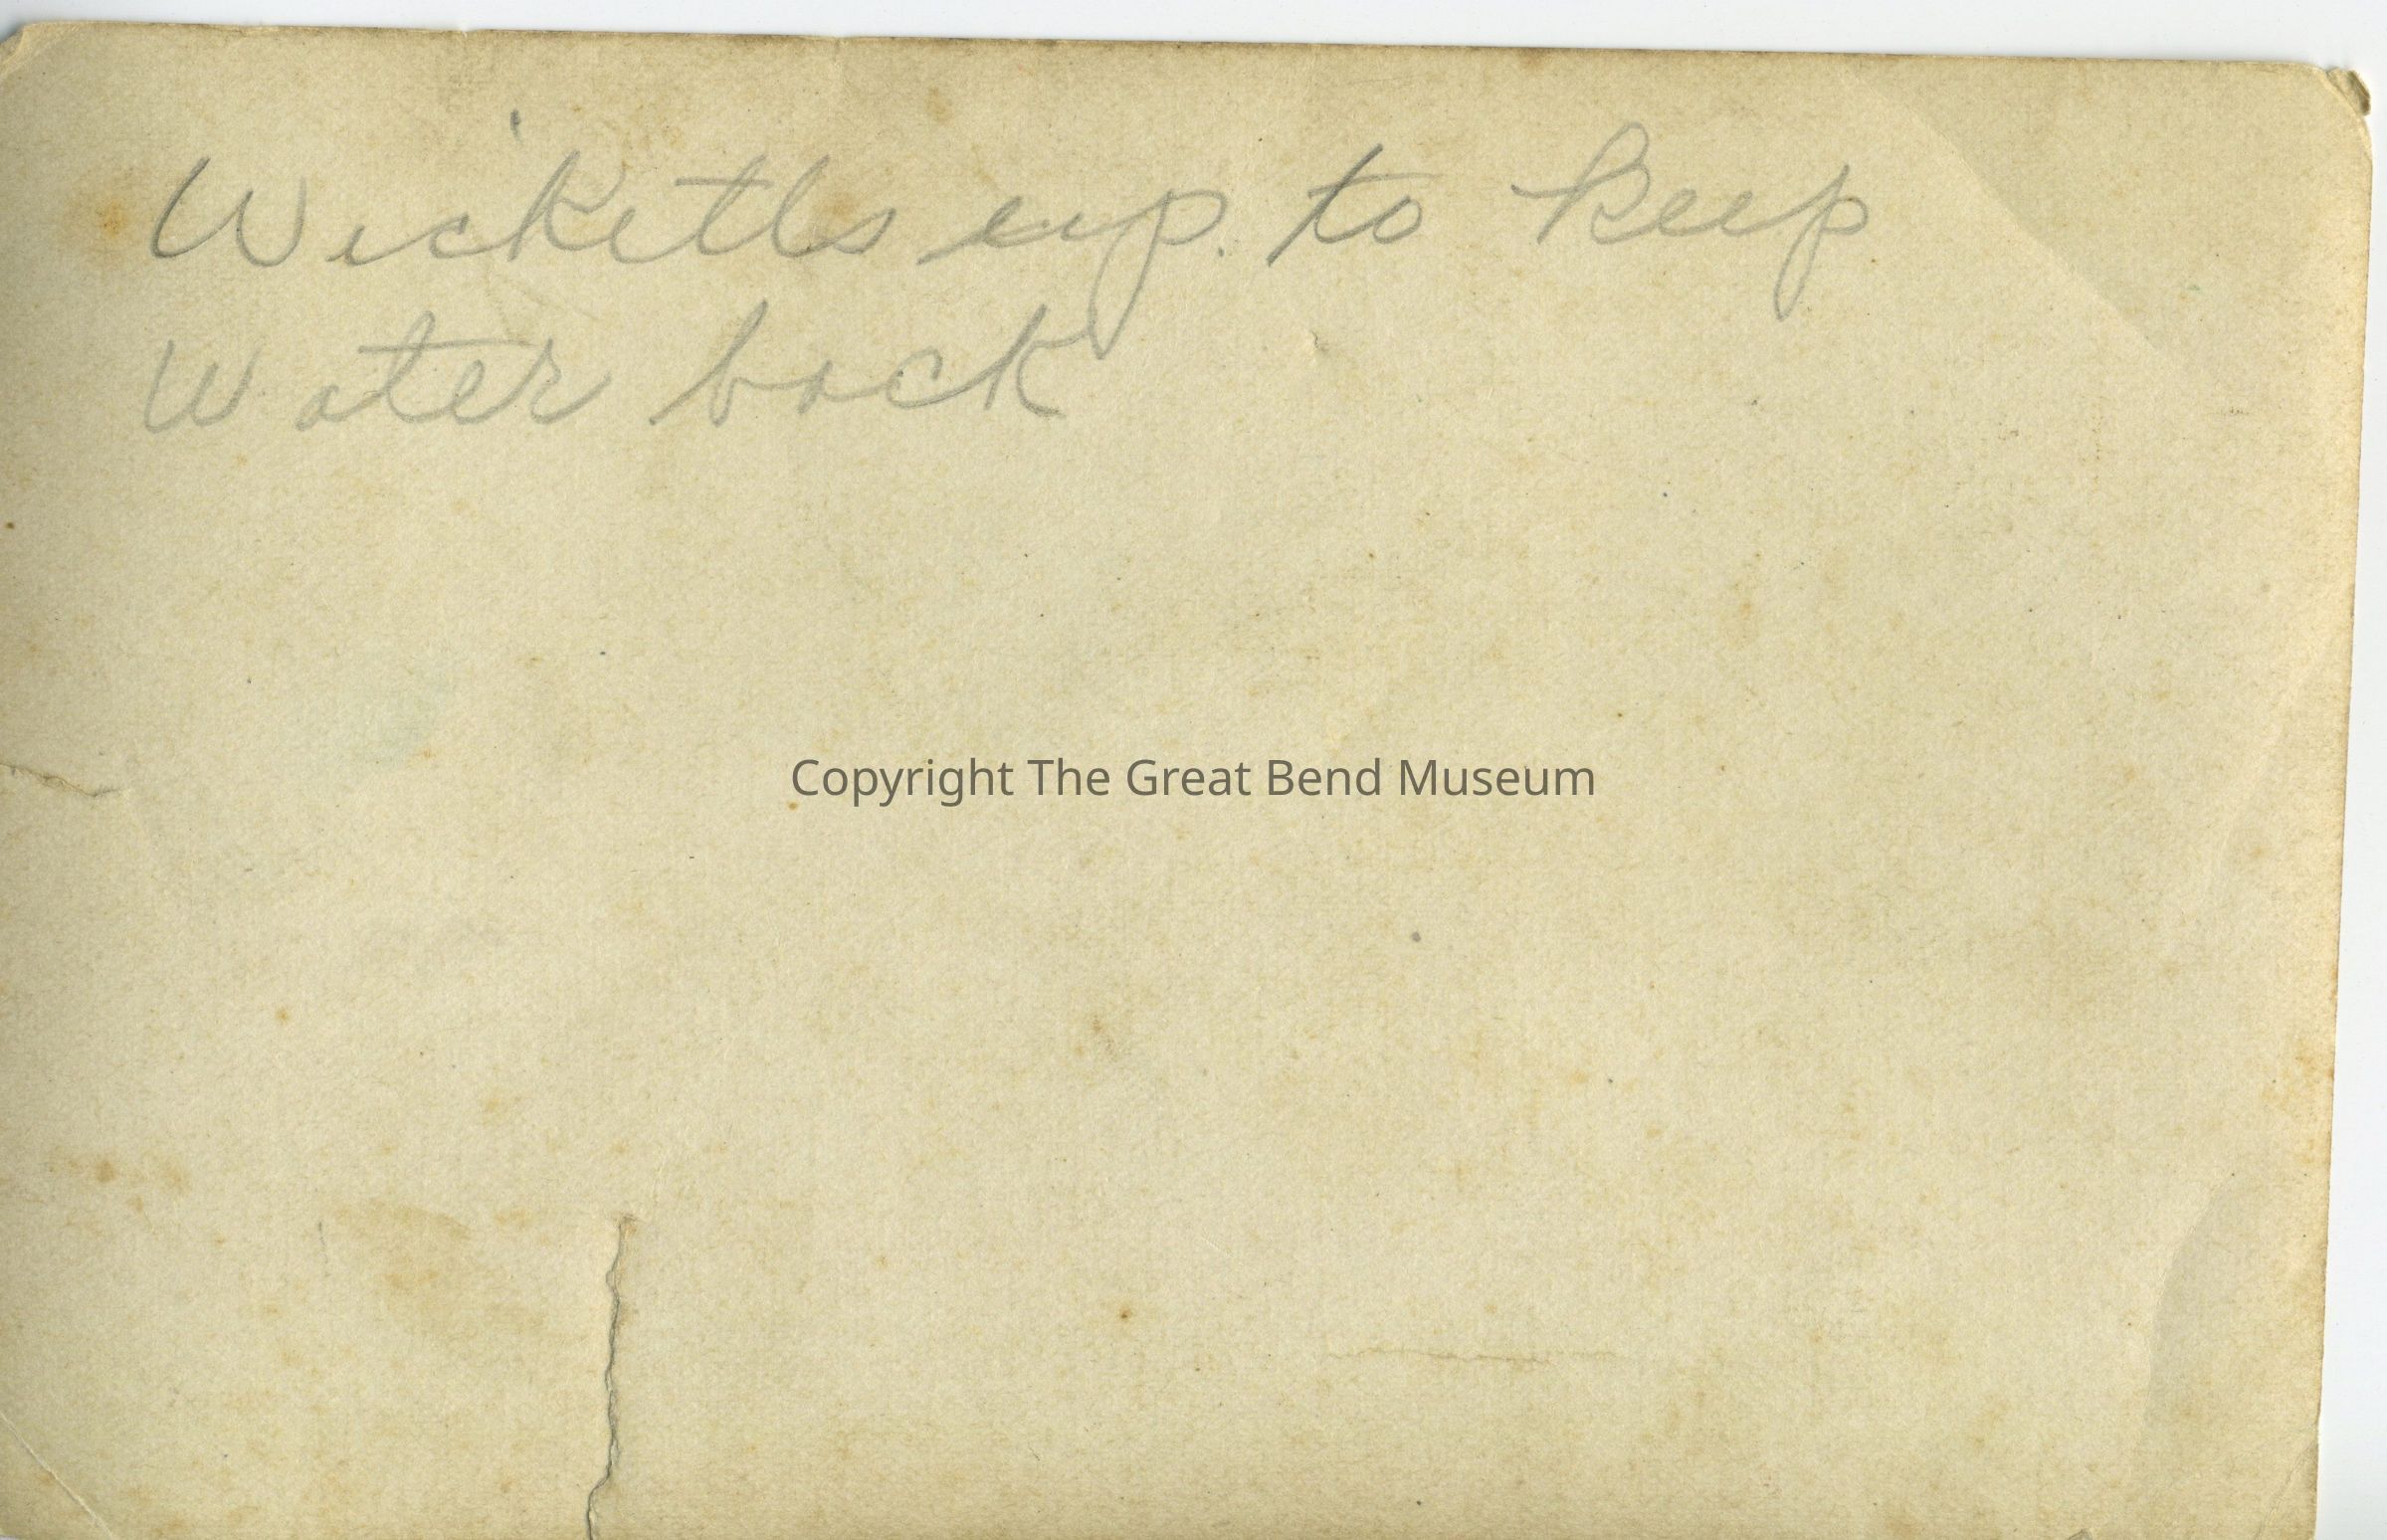 Wicketts up. to Keep
Water back
Copyright The Great Bend Museum